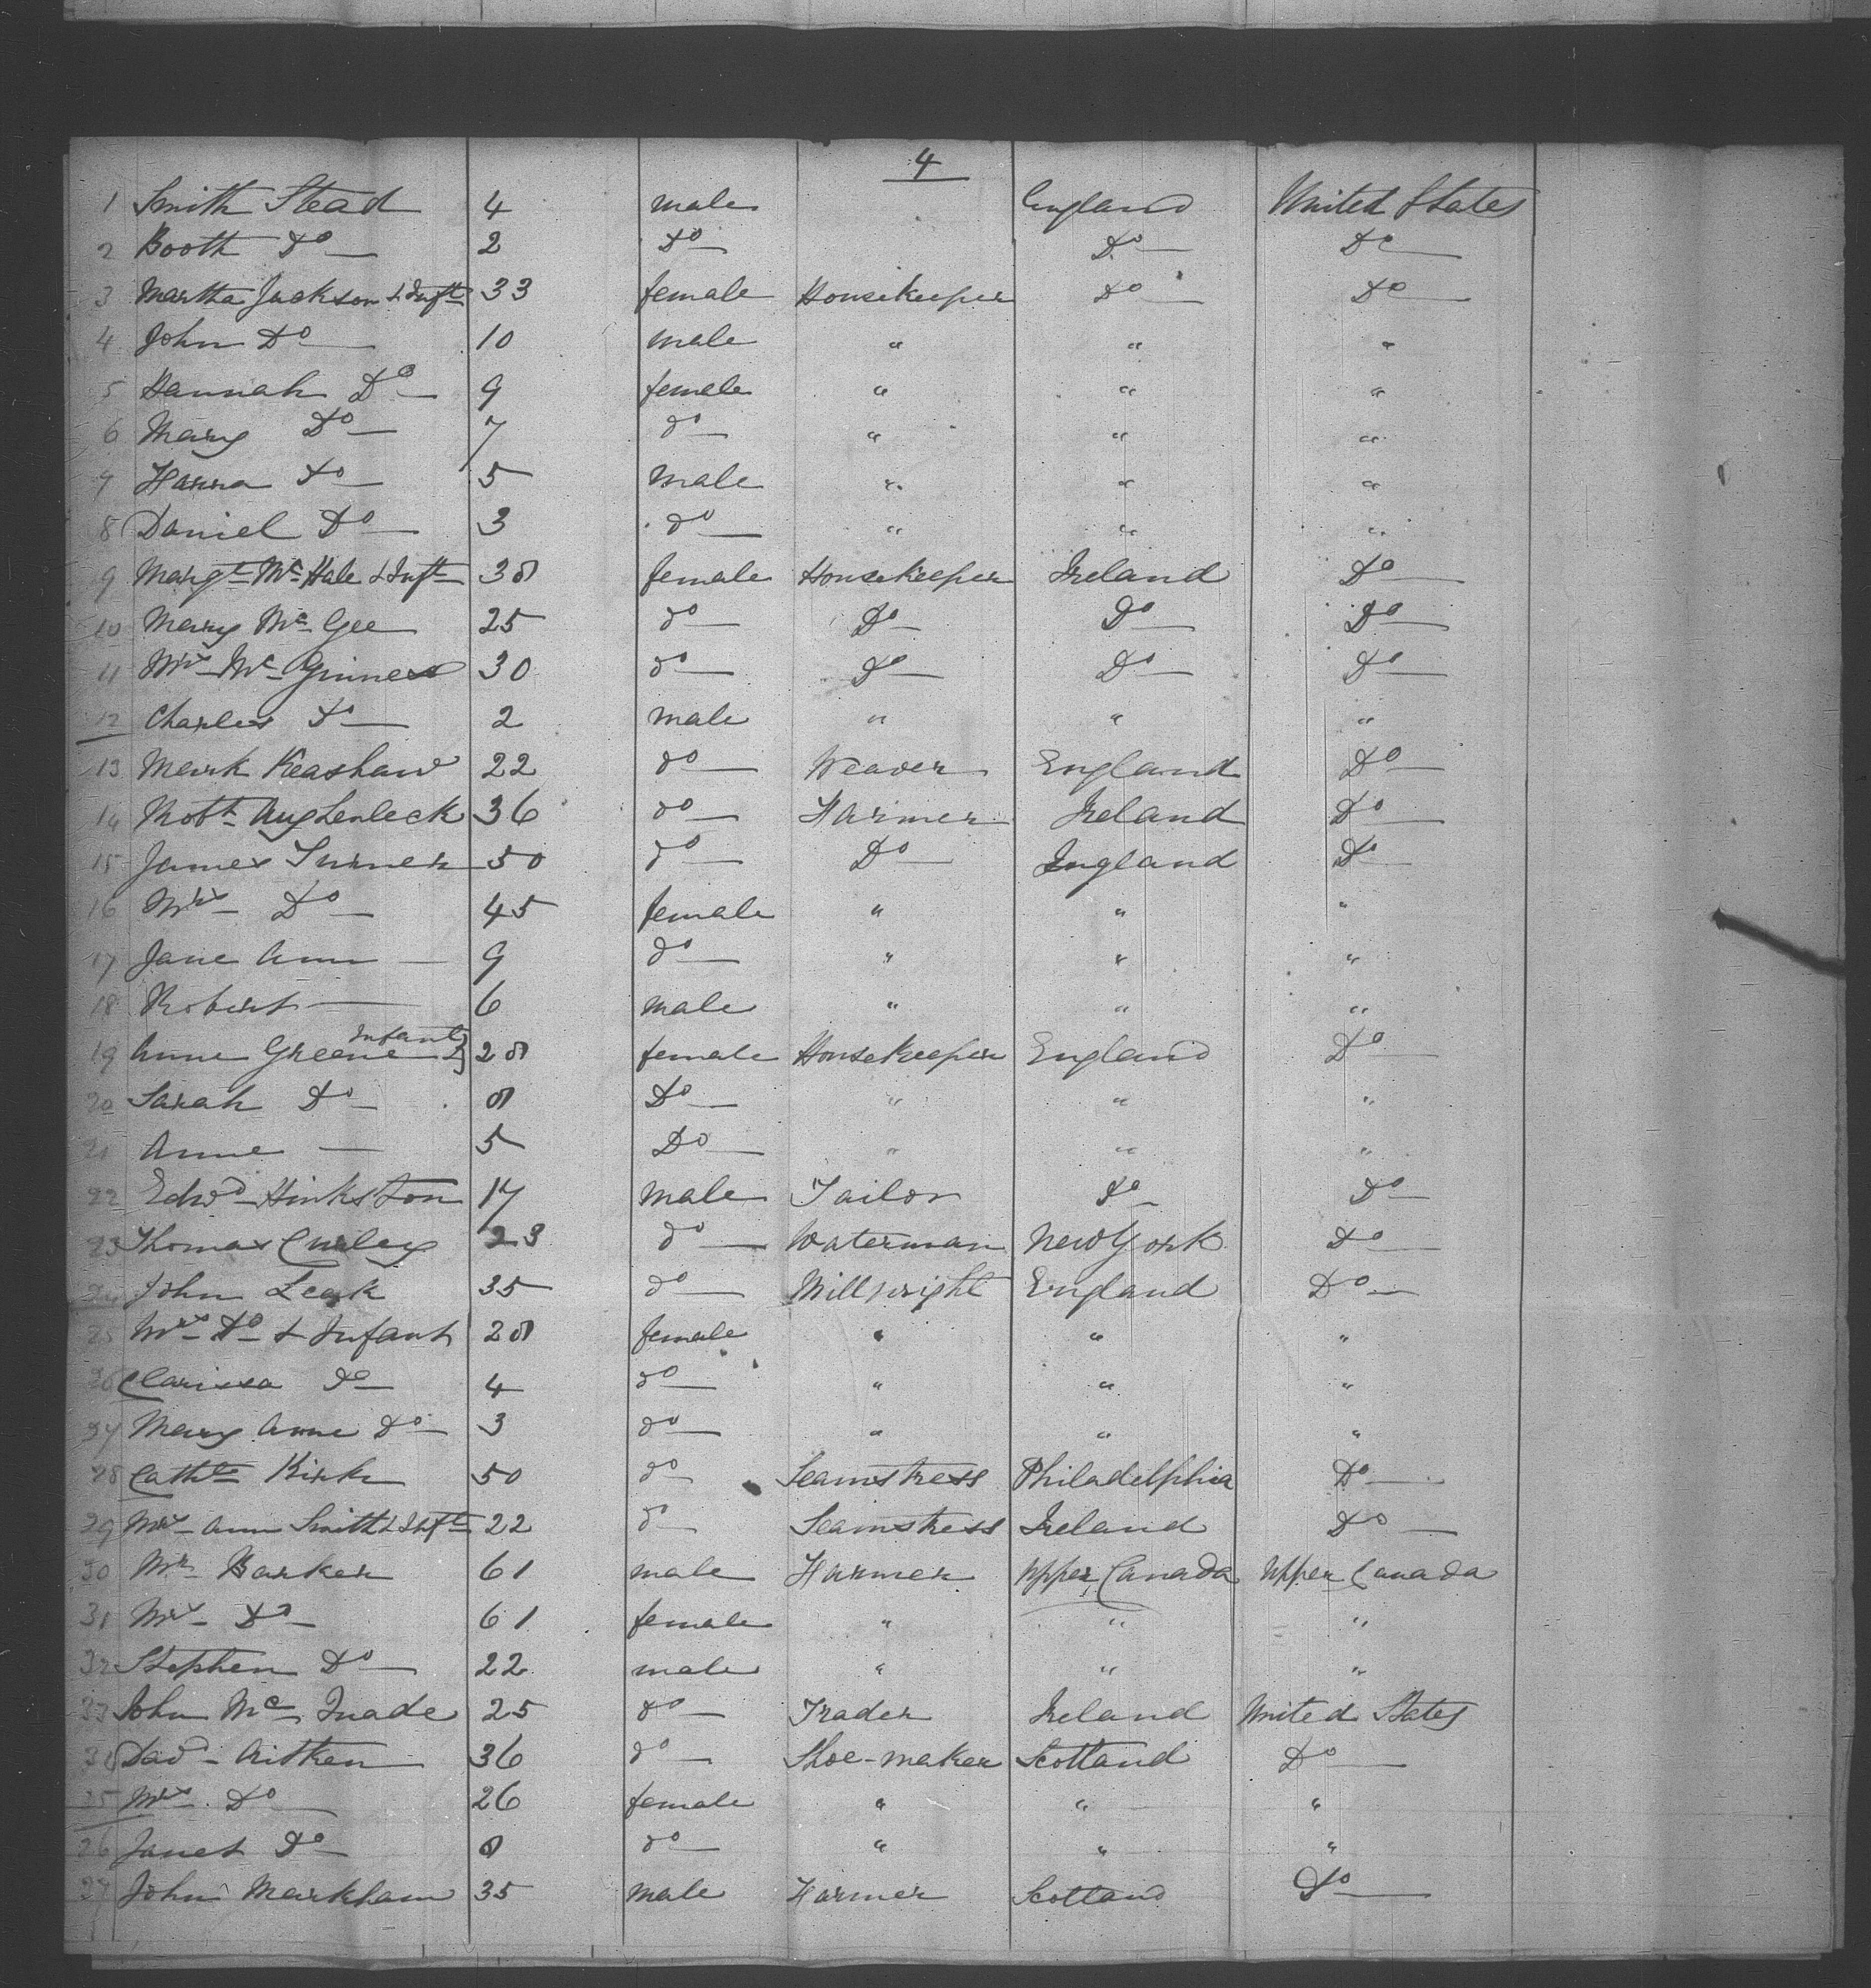 4
1 Smith Stead 4 male England United States
2 Booth Do 2 Do Do Do
3 Martha Jackson & Inft 33 female Housekeeper Do Do
4 John Do 10 male " " "
5 Hannah Do 9 female " " "
6 Mary Do 7 do " " "
7 Do 5 male " " "
8 Daniel Do 3 do " " "
9 Margt Mc Hale & Inft 38 female Housekeeper Ireland Do
10 Mary Mc Gee 25 do Do Do Do
11 Mrs Mc Ginness 30 do Do Do Do
12 Charles Do 2 male " " "
13 Mark Keashaw 22 do Weaver England Do
14 Robt Aughenleck 36 do Farmer Ireland Do
15 James Turner 50 do Do England Do
16 Mrs Do 45 female " " "
17 Jane Ann — 9 do " " "
18 Robert — 6 male " " "
19 Anne Greene & Infant } 28 female Housekeeper England Do
20 Sarah Do 8 Do " " "
21 Anne — 5 Do " " "
22 Edwd Hinkston 17 male Tailor Do Do
23 Thomas Curley 23 do Waterman New York Do
24 John Leak 35 do Millwright England Do
25 Mrs Do & Infant 28 female " " "
26 Clarissa Do 4 do " " "
27 Mary Anne Do 3 do " " "
28 Cathe Kirk 50 do Seamstress Philadelphia Do
29 Mrs Ann Smith & Inft 22 do Seamstress Ireland Do
30 Mr Barker 61 male Farmer Upper Canada Upper Canada
31 Mrs Do 61 female " " "
32 Stephen Do 22 male " " "
33 John Mc Quade 25 do Trader Ireland United States
34 Davd Aitken 36 do Shoe-maker Scotland Do
35 Mrs Do 26 female " " "
36 Janet Do 8 do " " "
37 John Markham 35 male Farmer Scotland Do